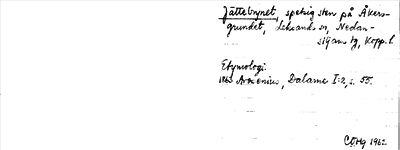 Jättebrynet, spetsig sten på Åkers-
grundet, Leksands sn, Nedan-
siljans tg, Kopp. l.
Etymologi:
1863 Arosenius, Dalarne I:2, s. 55.
1962